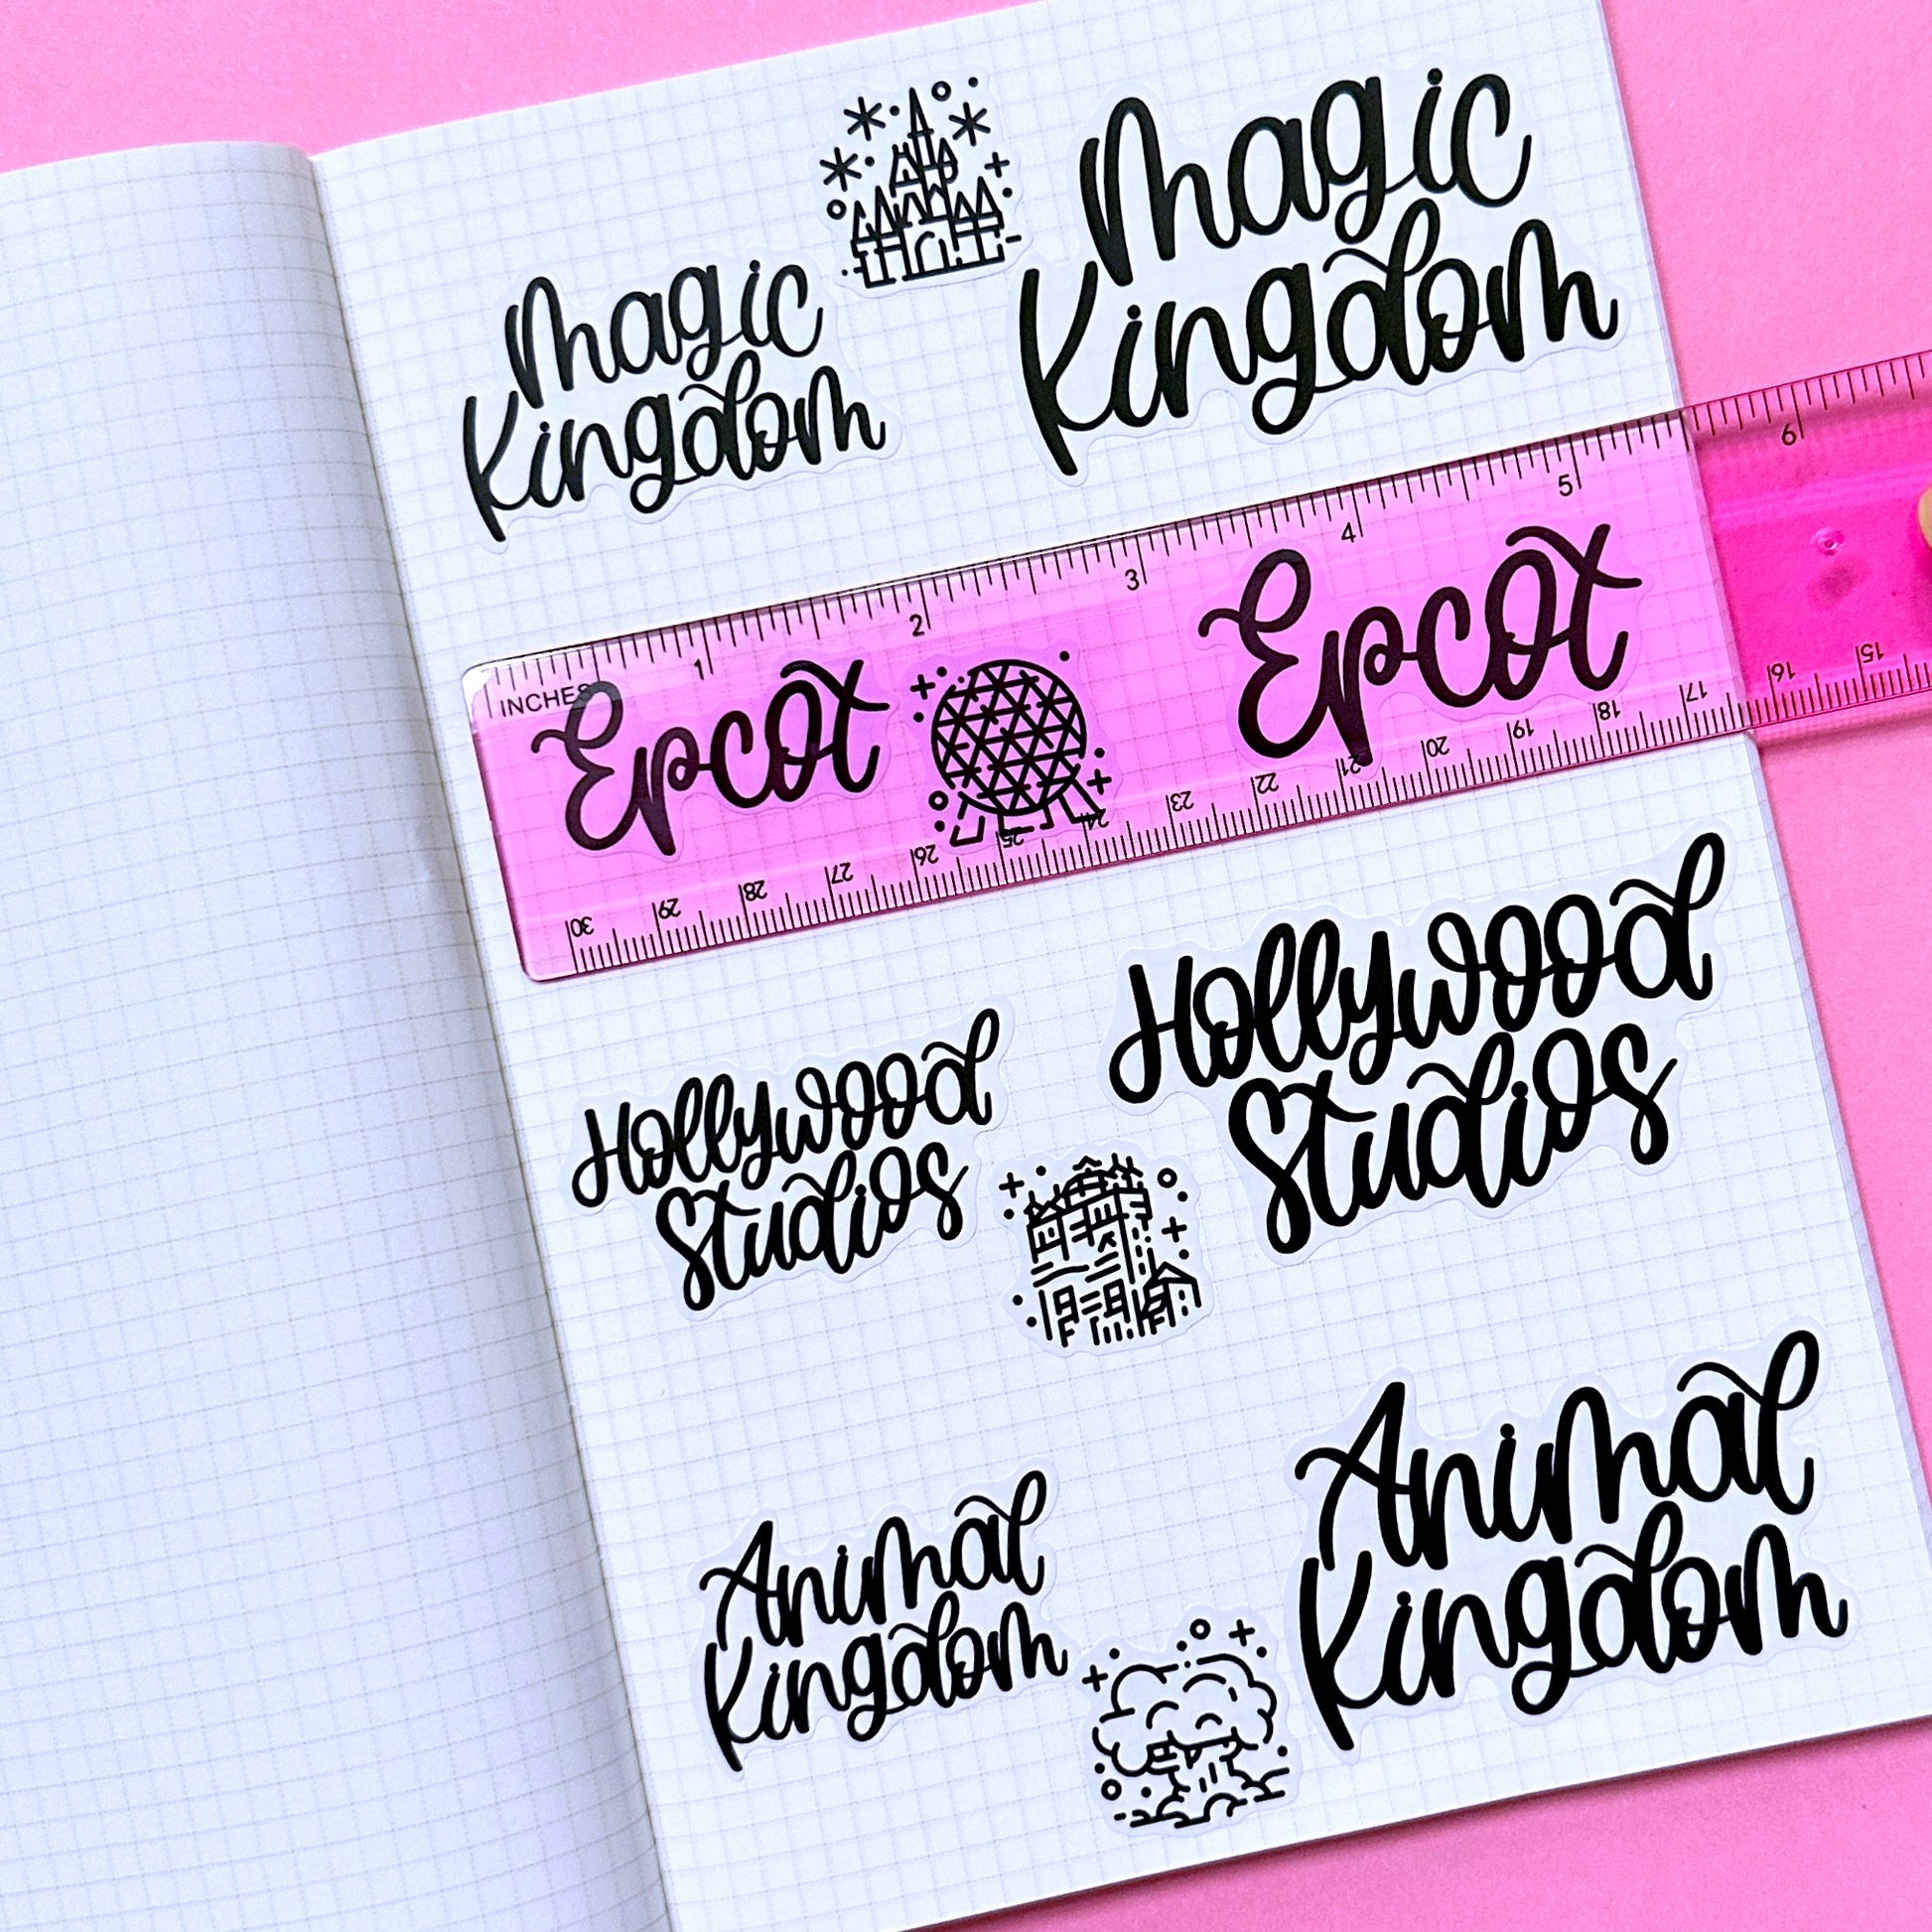 Magic
Kingdom
Magic
Kingdom
INCHES 1 2 3 4 5 6
Epcot
Epcot
30 29 28 27 26 25 24 23 22 21 20 19 18 17 16 15
Hollywood
Studios
Hollywood
Studios
Animal
Kingdom
Animal
Kingdom